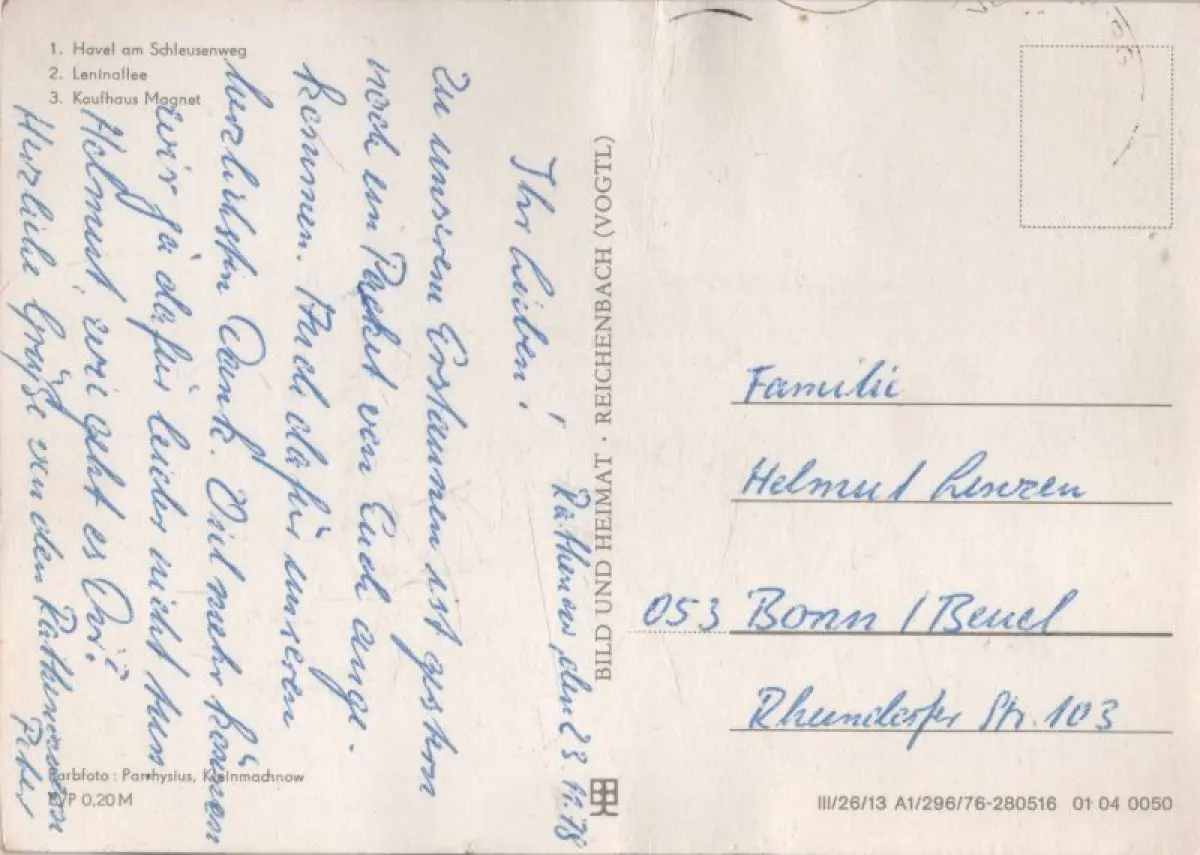 1. Havel am Schleusenweg
2. Leninallee
3. Kaufhaus Magnet
Rathenow, den 23.11.78
Ihr Lieben!
Zu unserem Erstaunen ist gestern
noch ein Packet von Euch ange-
kommen. Auch dafür unseren
herzlichsten Dank. Viel mehr können
wir ja dafür leider nicht tun
Helmut, wie geht es Dir?
Herzliche Grüße von den Rathenowern
Peter
Farbfoto: Parrhysius, Kleinmachnow
EVP 0,20 M
BILD UND HEIMAT · REICHENBACH (VOGTL)
Familie
Helmut Lenzen
053 Bonn / Beuel
Str. 103
III/26/13 A1/296/76-280516 01 04 0050